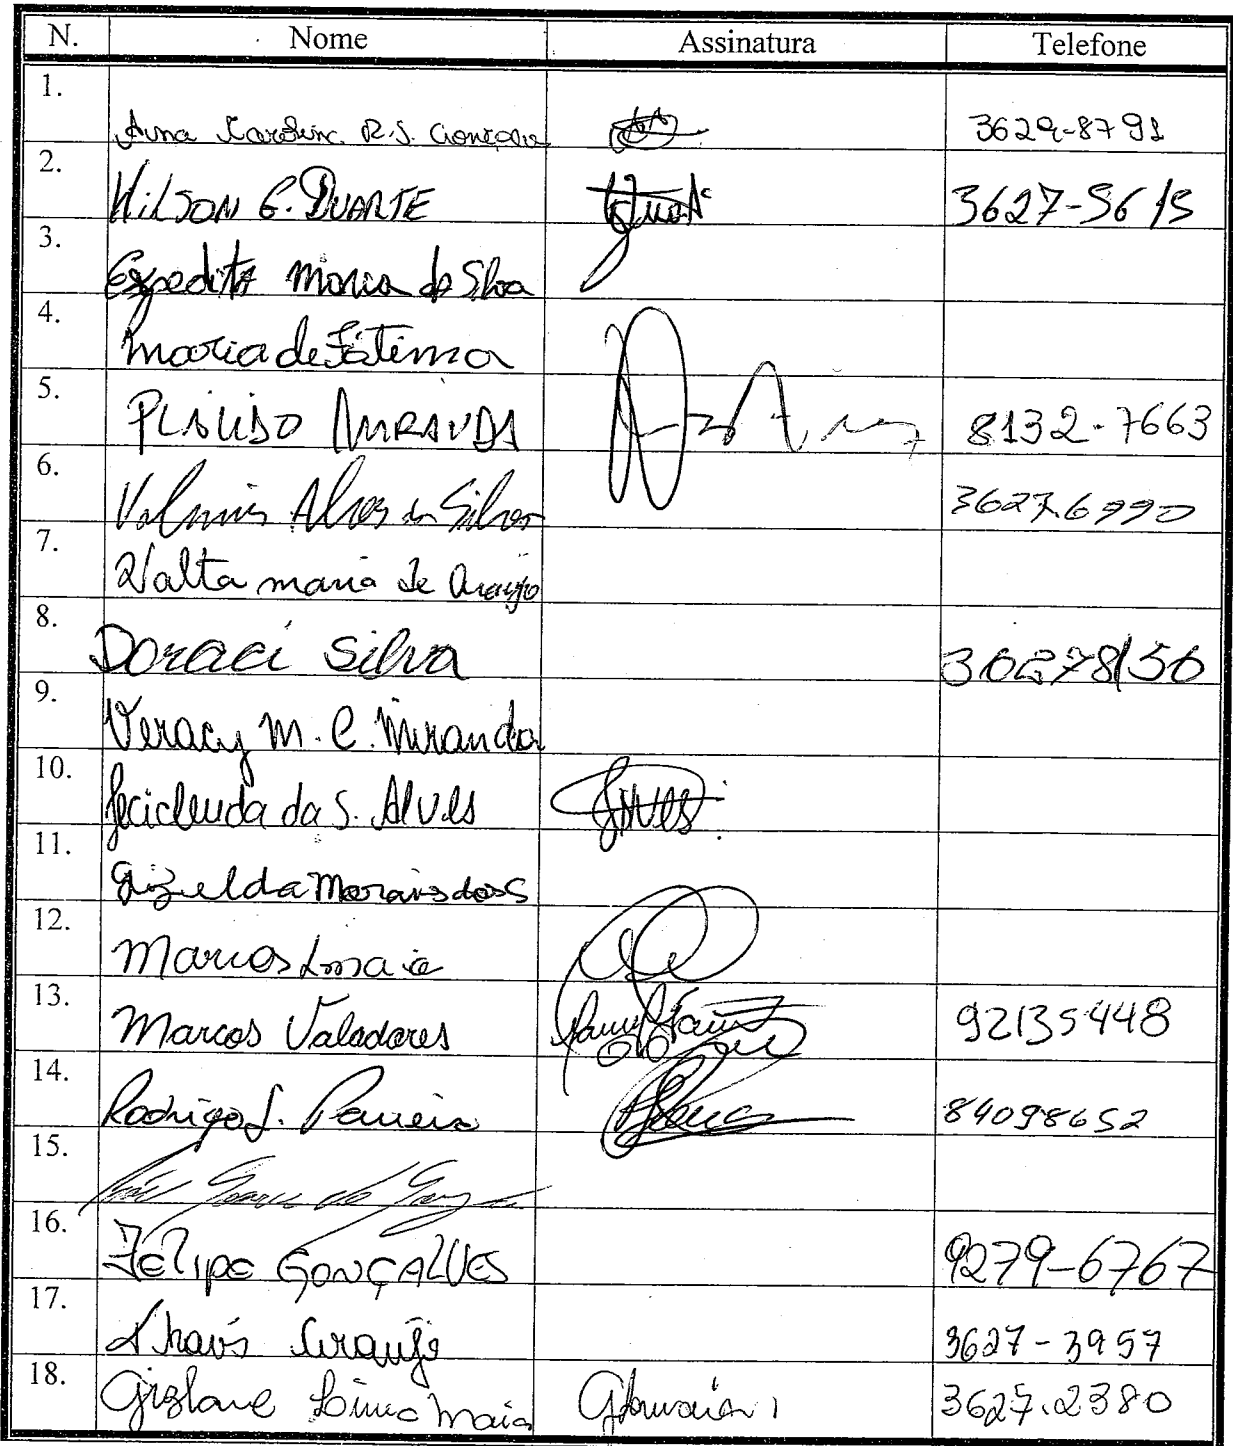 N. Nome Assinatura Telefone
1. Ana Caroline R.S. 3629-8791
2. Wilson G. DUARTE 3627-5615
3. Expedita Maria da Silva
4. Maria de Fátima
5. PLÁCIDO MIRANDA 8132-7663
6. Alves da Silva 3627.6990
7. Valta maria de Araújo
8. Doraci Silva 36278156
9. Veracy M. C. Miranda
10. da S. Alves
11. Gizelda Morais dos S
12. Marcos maia
13. Marcos Valadares 92135448
14. Rodrigo 84098652
15.
16. Felipe GONÇALVES 9279-6767
17. Araujo 3627-3957
18. Gislane Lima Maia 3627.2380